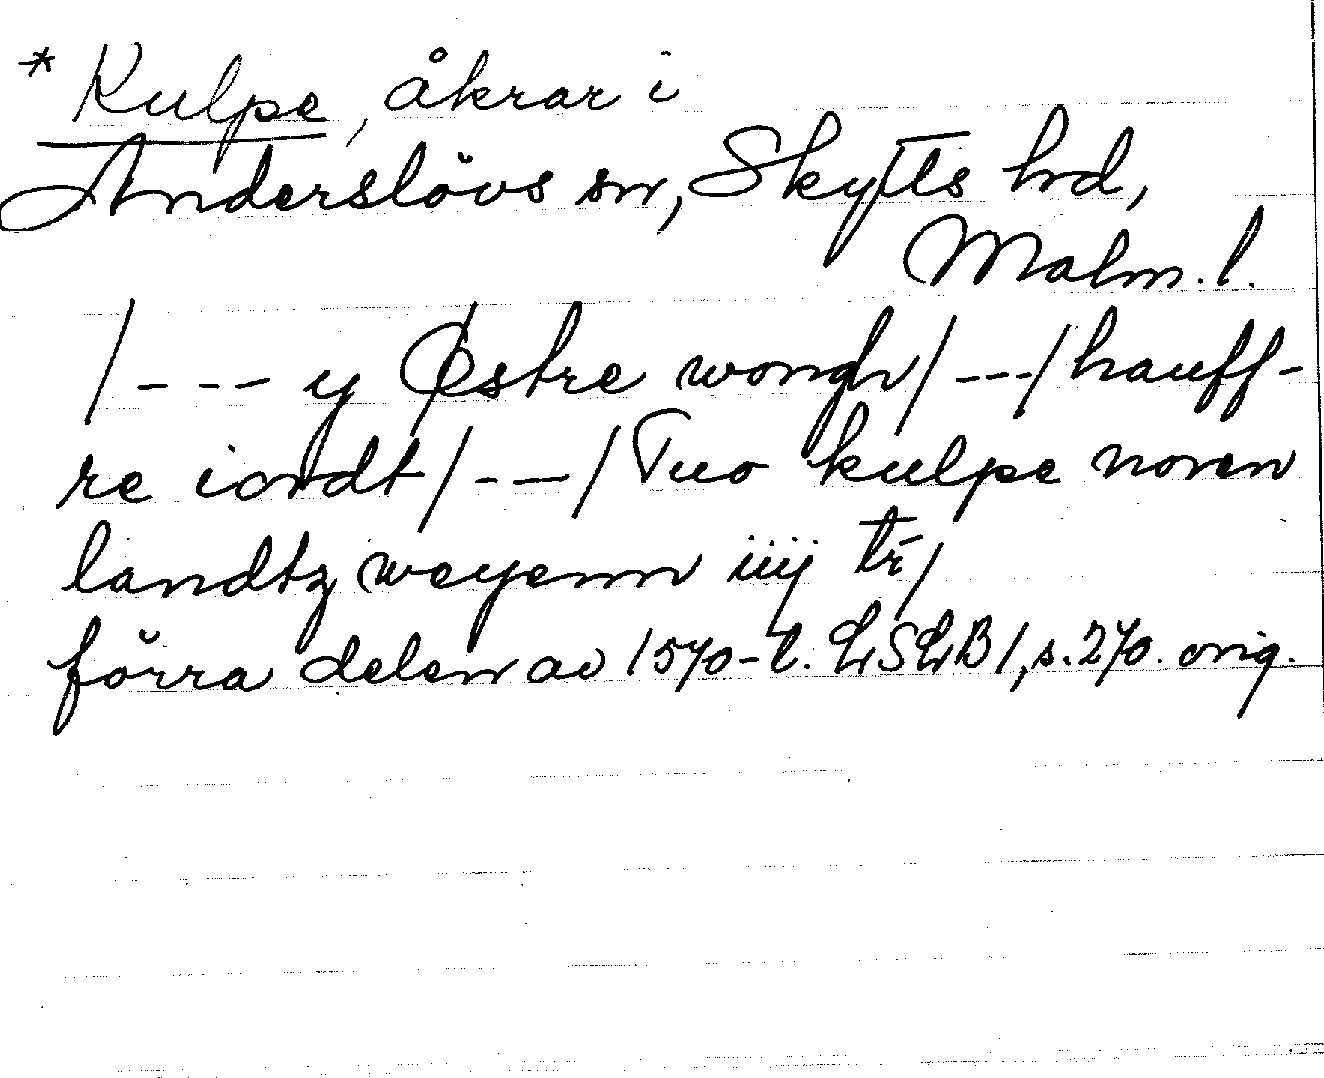 * Kulpe, åkrar i
Anderslövs sn, Skytts hd,
Malm. l.
/--- y Østre wongh/---/hauff-
re iordt/---/Tuo kulpe noren
landtz weyenn iiij tr̄/
förra delen av 1570-t. LSLB1, s. 270. orig.